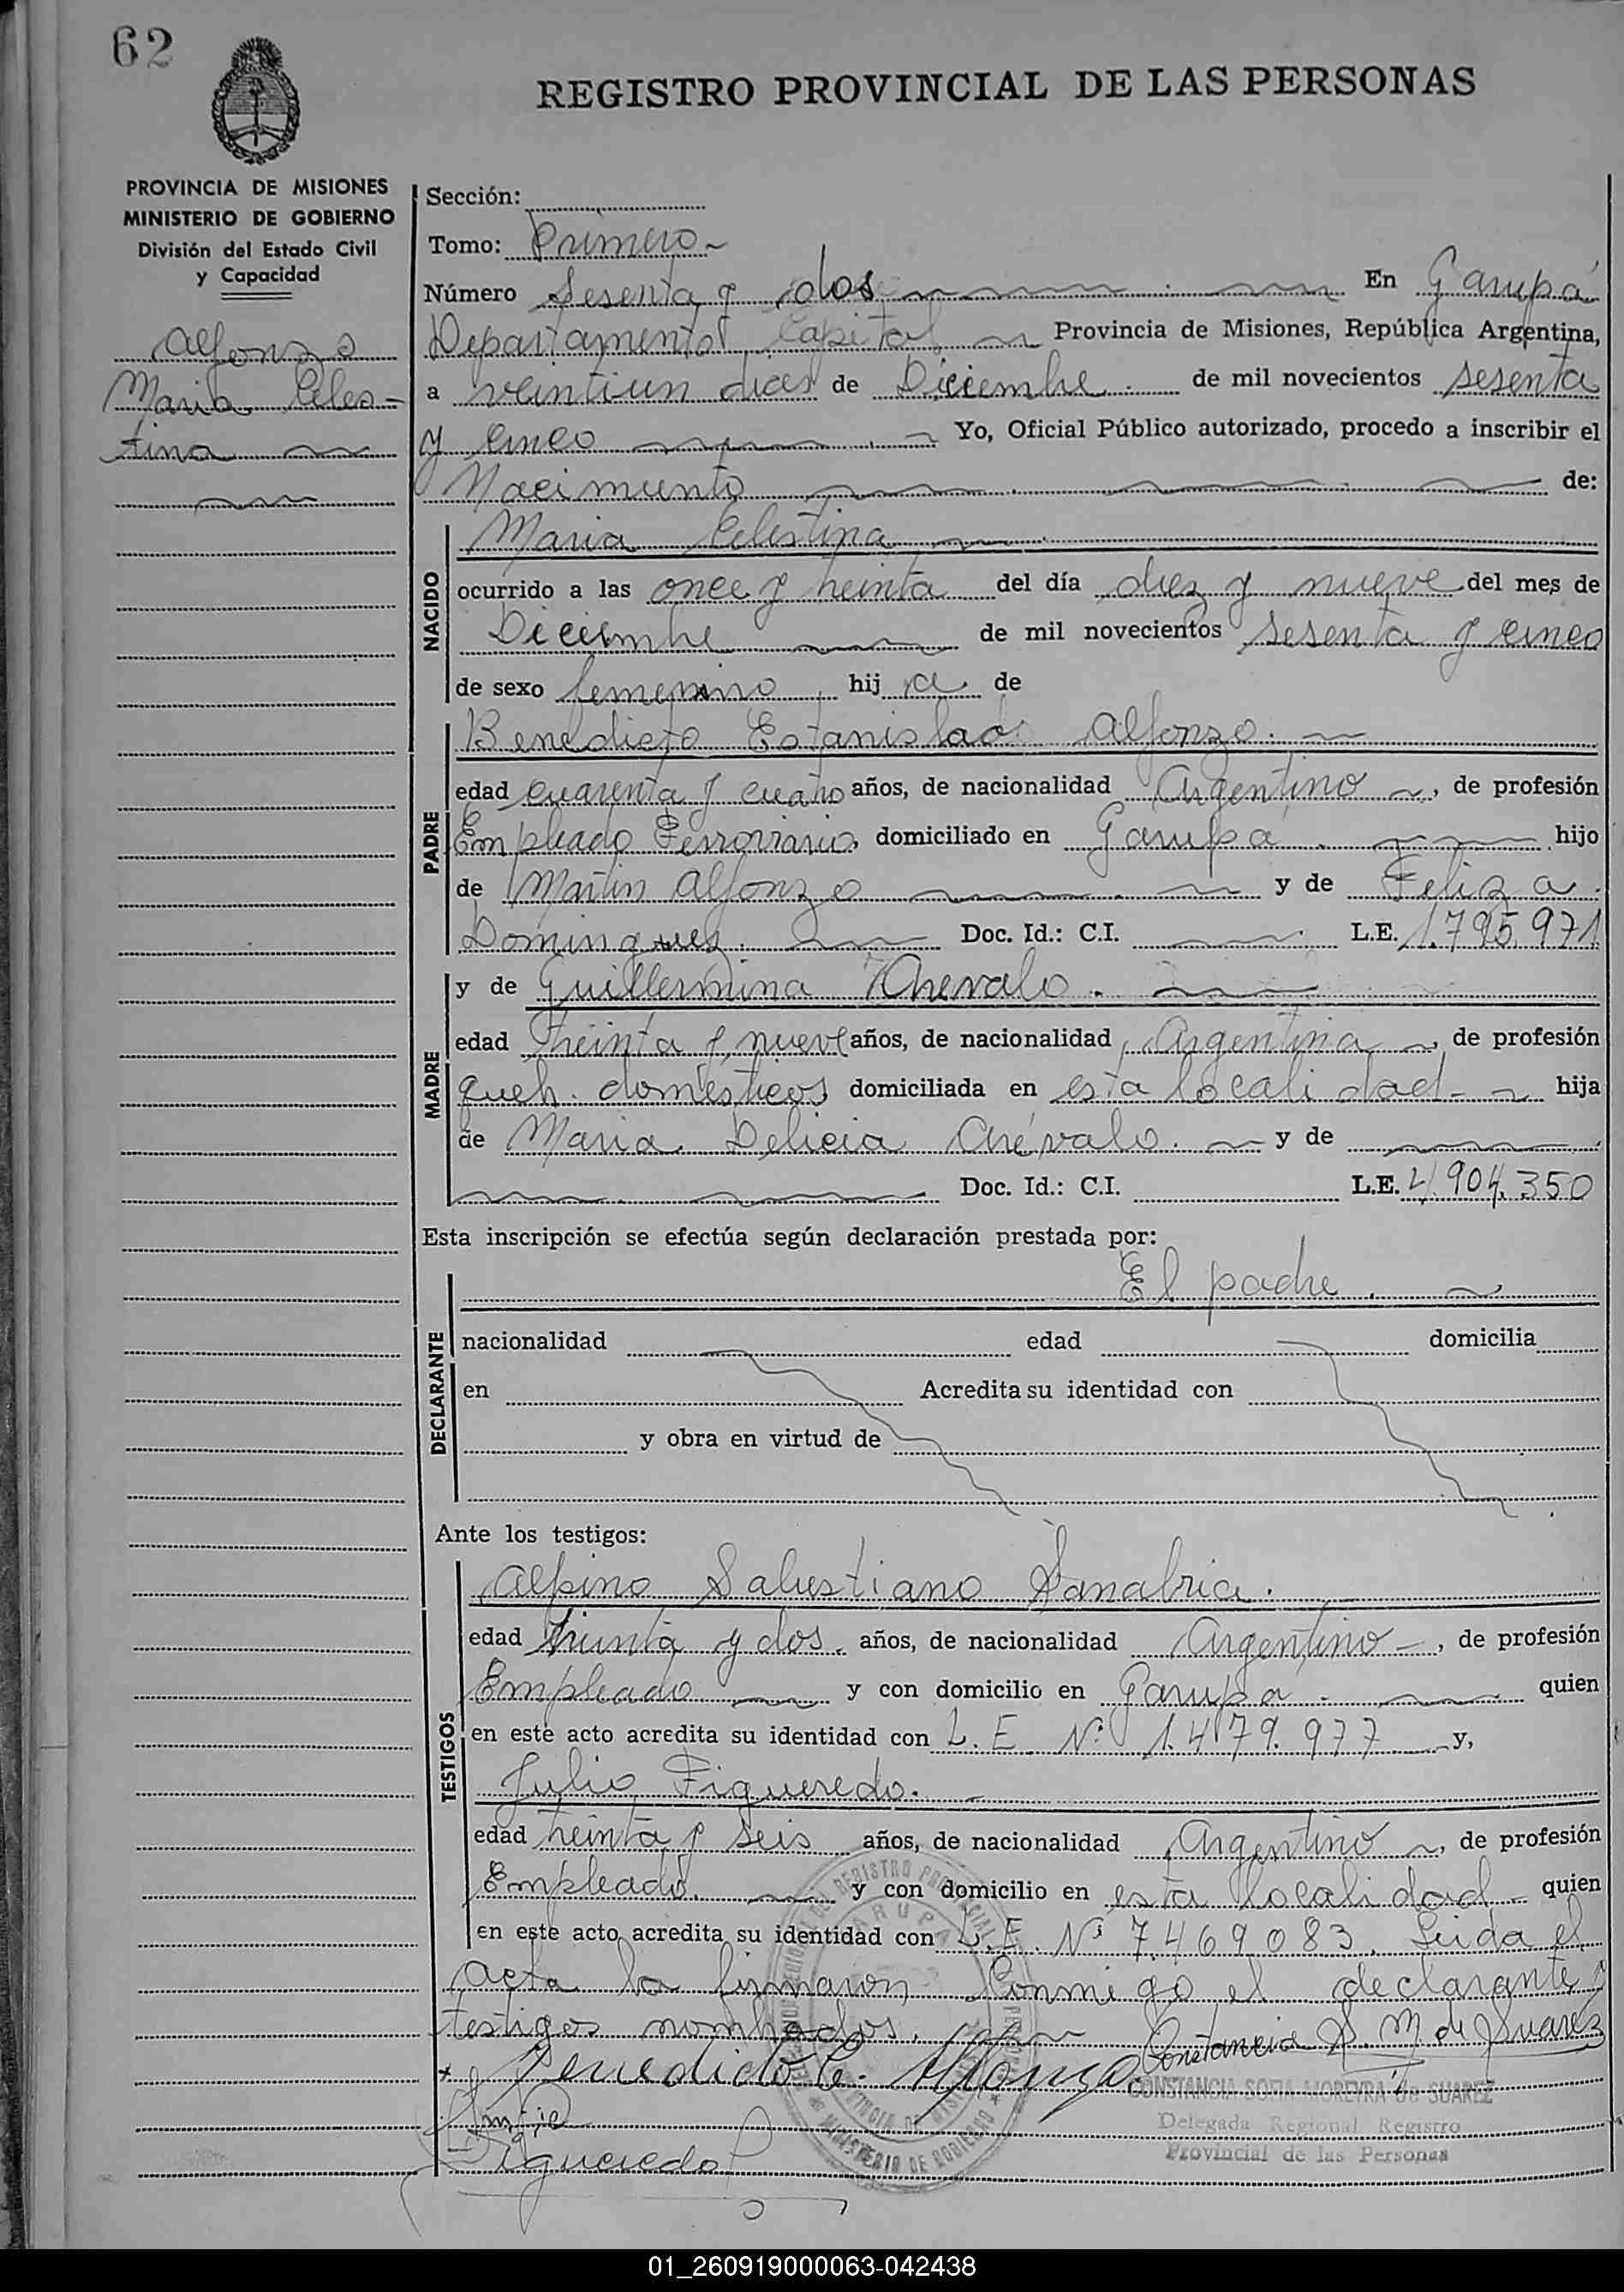 62
REGISTRO PROVINCIAL DE LAS PERSONAS
PROVINCIA DE MISIONES
MINISTERIO DE GOBIERNO
División del Estado Civil
y Capacidad
Alfonzo
Maria Celes-
tina
Sección:
Tomo: Primero
Número Sesenta y dos En Garupá
Departamento Capital Provincia de Misiones, República Argentina,
a veintiun dias de Diciembre de mil novecientos sesenta
y cinco Yo, Oficial Público autorizado, procedo a inscribir el
Nacimiento de:
NACIDO
Maria Celestina
ocurrido a las once y treinta del día diez y nueve del mes de
Diciembre de mil novecientos sesenta y cinco
de sexo femenino hij a de
PADRE
Benedicto Estanislao Alfonzo.
edad cuarenta y cuatro años, de nacionalidad Argentino, de profesión
Empleado Ferroviario, domiciliado en Garupa hijo
de Martin Alfonzo y de Feliza
Dominguez. Doc. Id.: C.I. L.E. 1.795.971
MADRE
y de Guillermina Arevalo.
edad treinta y nueve años, de nacionalidad Argentina, de profesión
queh. domésticos domiciliada en esta localidad hija
de Maria Delicia Arévalo. y de
Doc. Id.: C.I. L.E. 4.904.350
Esta inscripción se efectúa según declaración prestada por:
DECLARANTE
El padre.
nacionalidad edad domicilia
en Acredita su identidad con
y obra en virtud de
Ante los testigos:
TESTIGOS
Alpino Salustiano Sanabria.
edad treinta y dos. años, de nacionalidad Argentino, de profesión
Empleado y con domicilio en Garupa quien
en este acto acredita su identidad con L.E. Nº 1.479.977 y,
Julio Figueredo.
edad treinta y seis años, de nacionalidad Argentino, de profesión
Empleado y con domicilio en esta localidad quien
en este acto acredita su identidad con L.E. Nº 7.469.083. Leida el
acta la firmaron conmigo el declarante y
testigos nombrados. Constancia S. M. de Suarez
Benedicto E. Alfonzo
CONSTANCIA SOFIA MOREYRA de SUAREZ
Delegada Regional Registro
Provincial de las Personas
Figueredo
01_260919000063-042438